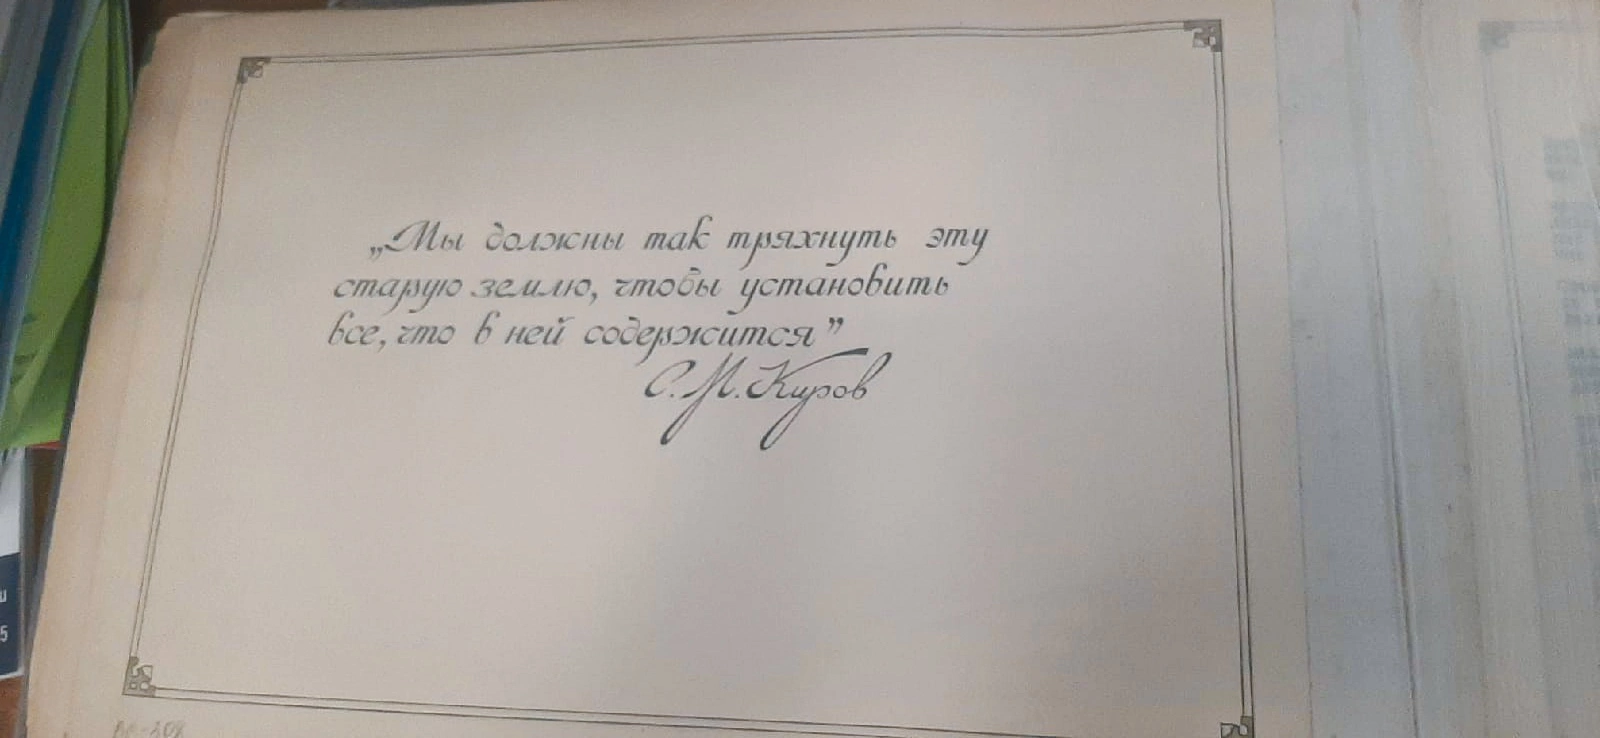 „Мы должны так тряхнуть эту
старую землю, чтобы установить
все, что в ней содержится”
С. М. Киров